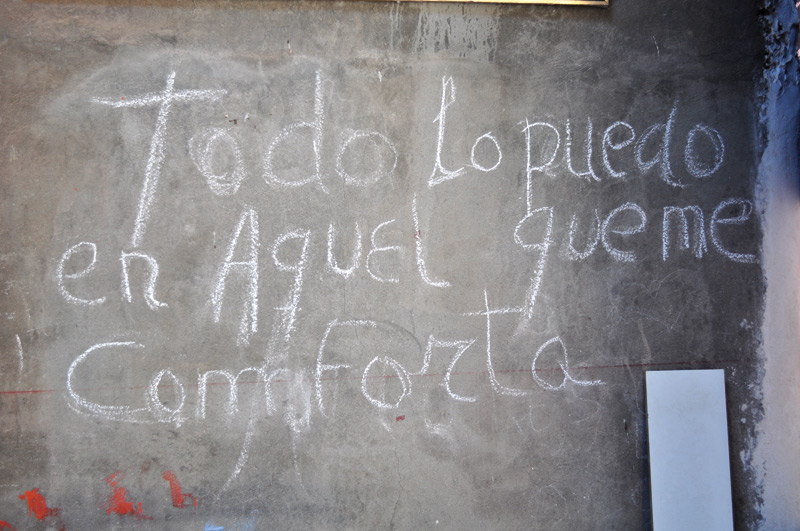 Todo lo puedo
en Aquel queme
ComForta